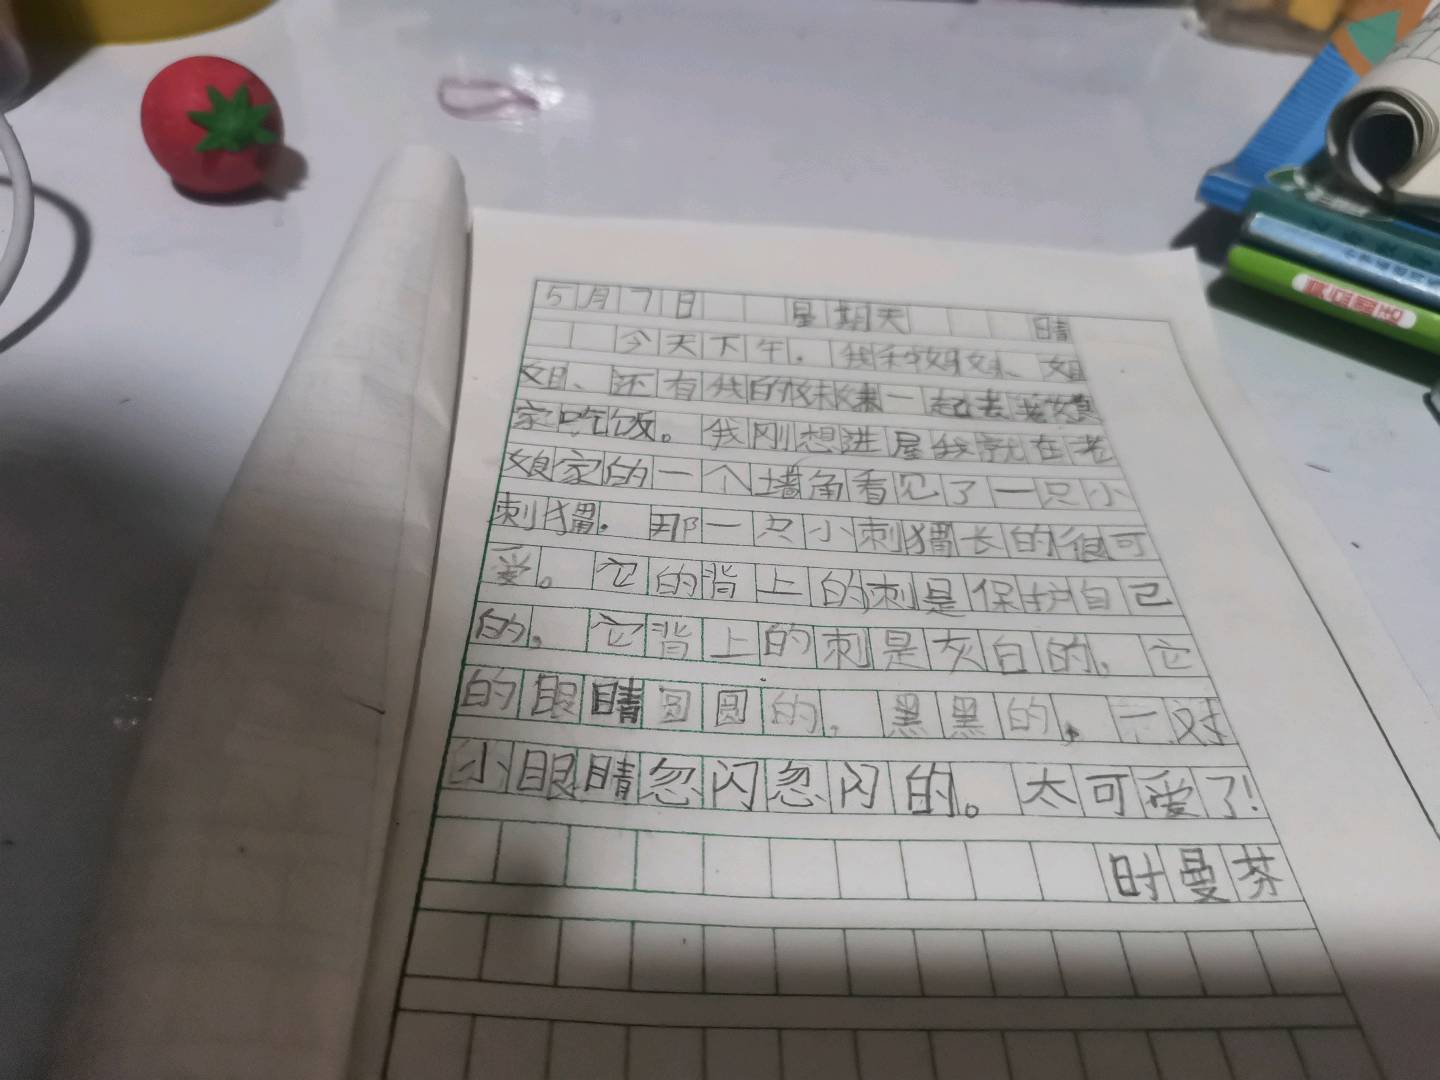 5月7日 星期天 晴
今天下午，我和妈妈、姐
姐、还有我的妹妹一起去老娘
家吃饭。我刚想进屋我就在老
娘家的一个墙角看见了一只小
刺猬。那一只小刺猬长的很可
爱。它的背上的刺是保护自己
的。它背上的刺是灰白的，它
的眼睛圆圆的，黑黑的，一对
小眼睛忽闪忽闪的。太可爱了！
时曼芬